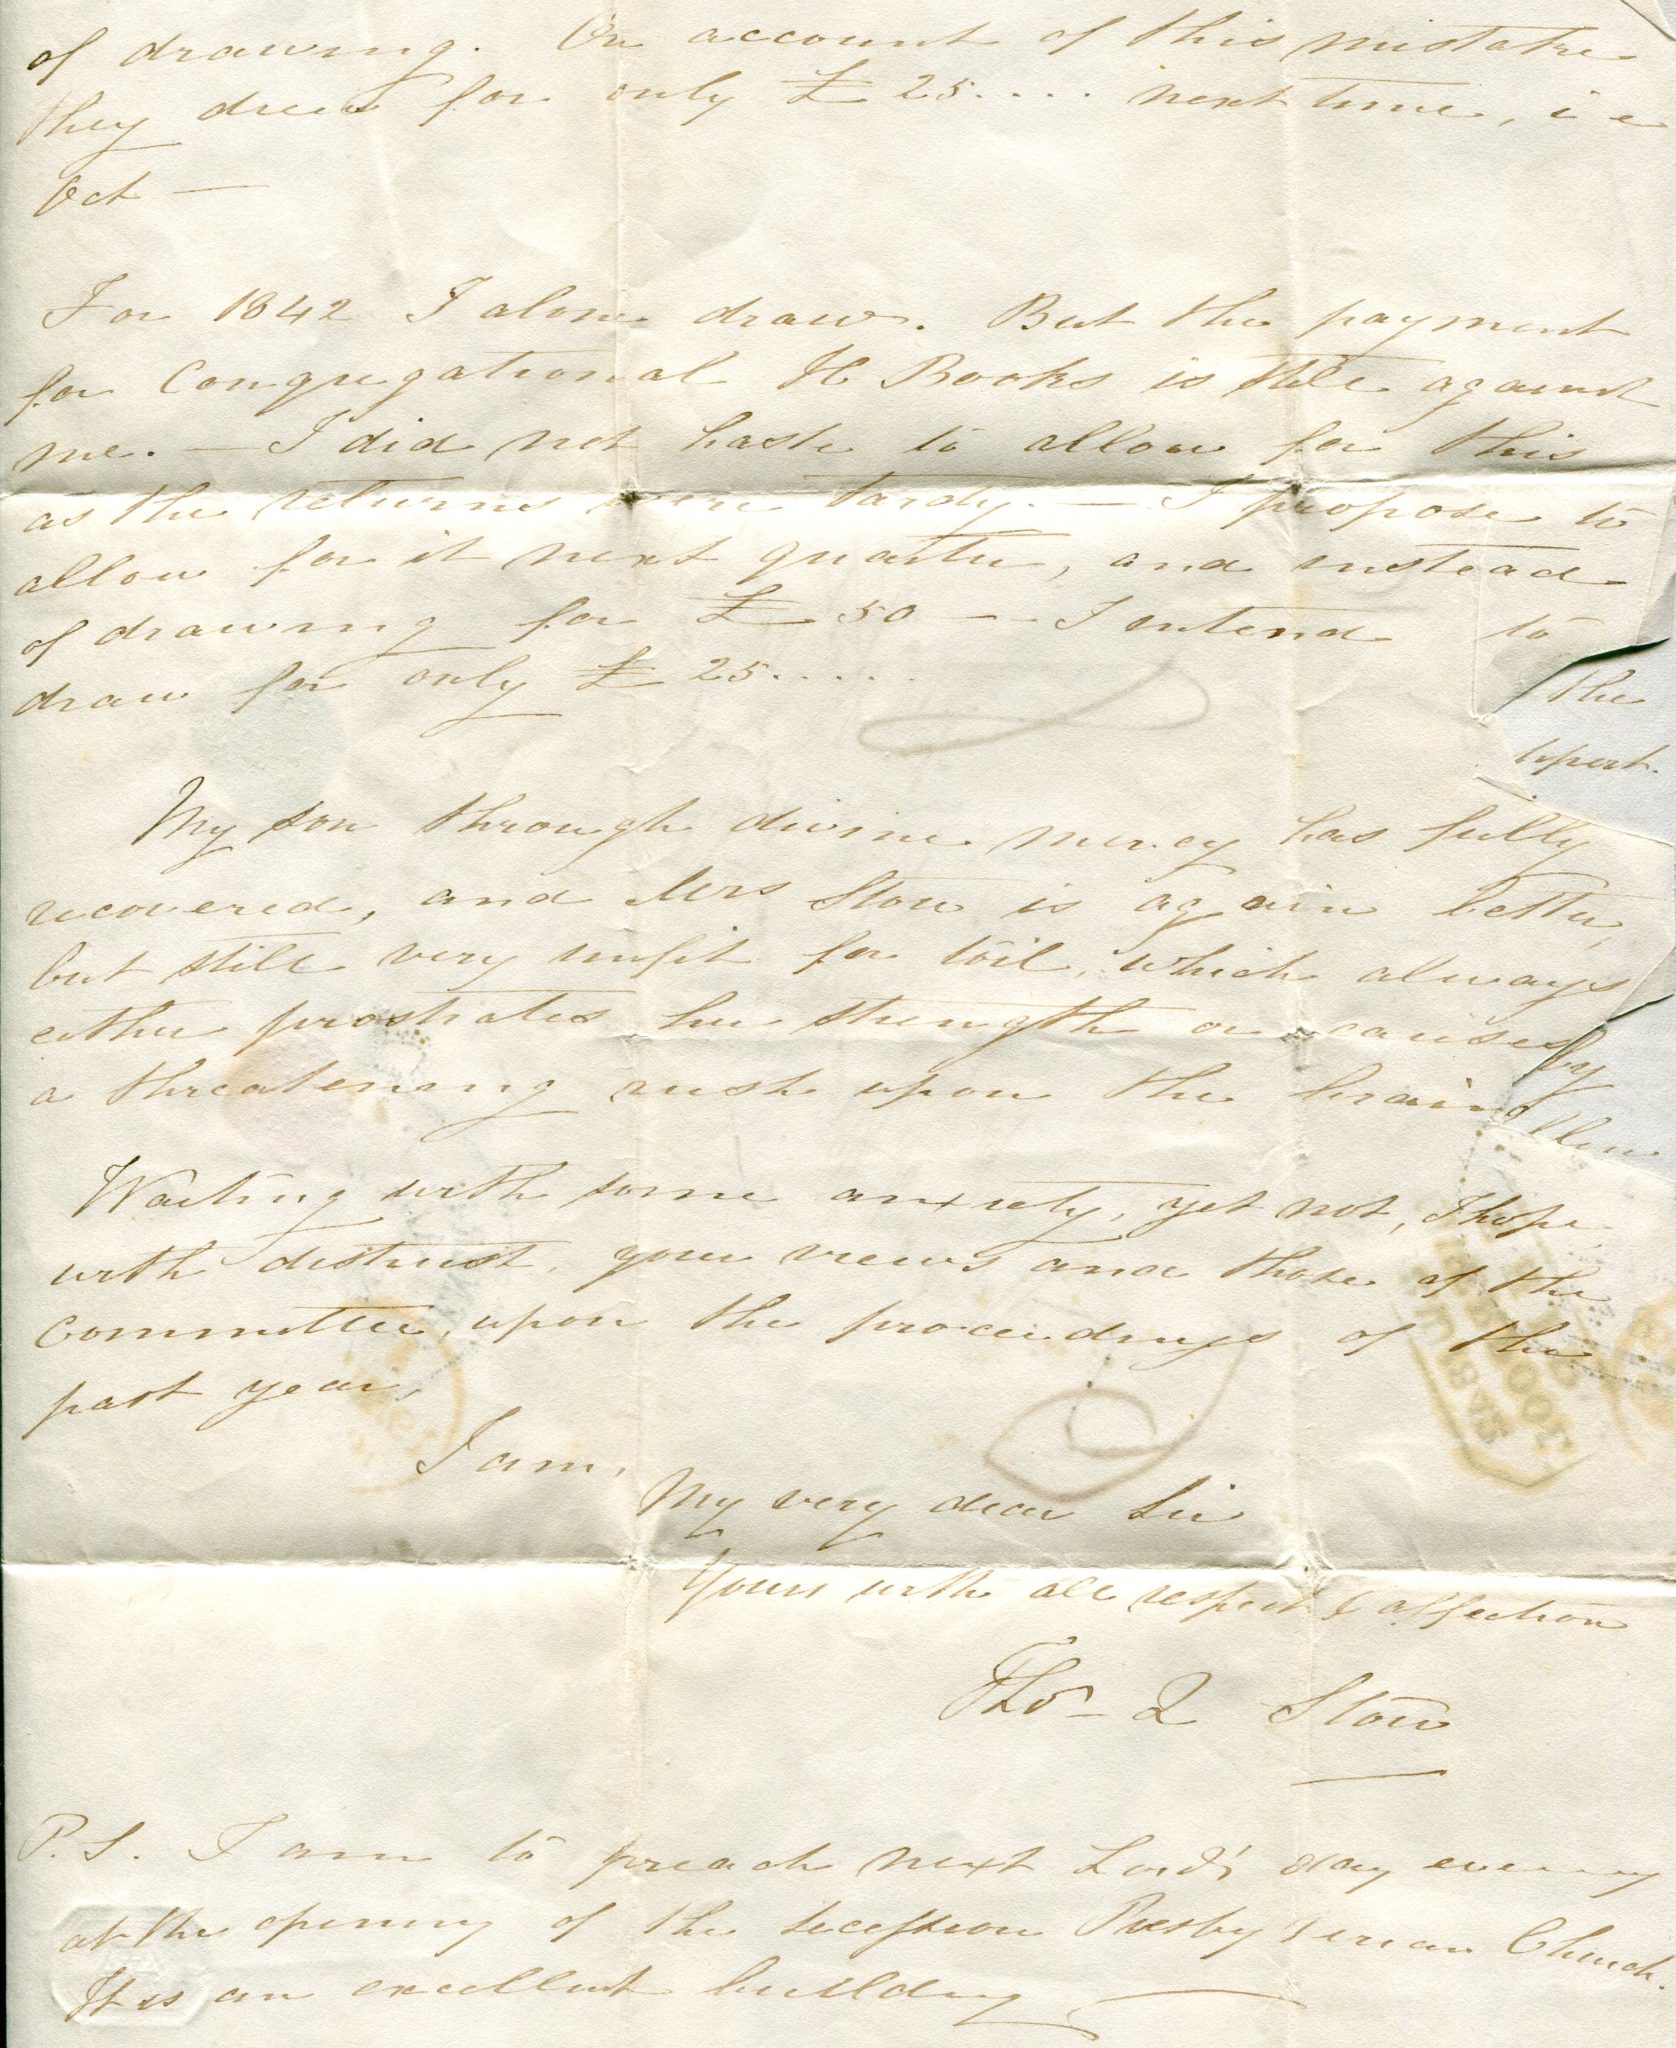 of drawing. On account of this mistake
they drew for only £ 25.... next time, i e
Oct —
For 1842 I alone draw. But the payment
for Congregational H Books is still against
me. — I did not haste to allow for this
as the returns were tardy. — I propose to
allow for it next quarter, and instead
of drawing for £ 50 — I intend to
draw for only £ 25.....
the
My son through divine mercy has fully
recovered, and Mrs Stow is again better,
but still very unfit for toil, which always
either prostrates her strength or causes
by
a threatening rush upon the brain
Waiting with some anxiety, yet not, I hope,
with distrust, your views and those of the
committee, upon the proceedings of the
past year,
I am,
My very dear Sir
Yours with all respect & affection
Thos Q Stow
P.S. I am to preach next Lord's day evening
at the opening of the secession Presbyterian Church.
It is an excellent building